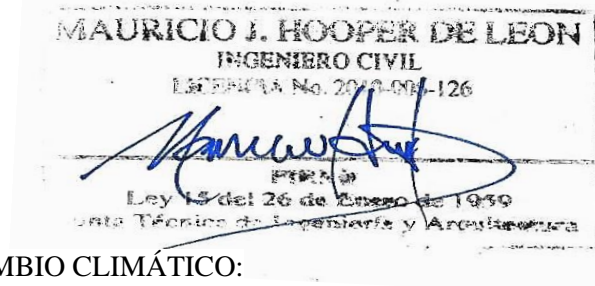 MAURICIO J. HOOPER DE LEON
INGENIERO CIVIL
LICENCIA No.
FIRMA
Ley 15 del 26 de Enero de 1959
Técnica de Ingeniería y Arquitectura
MBIO CLIMÁTICO: